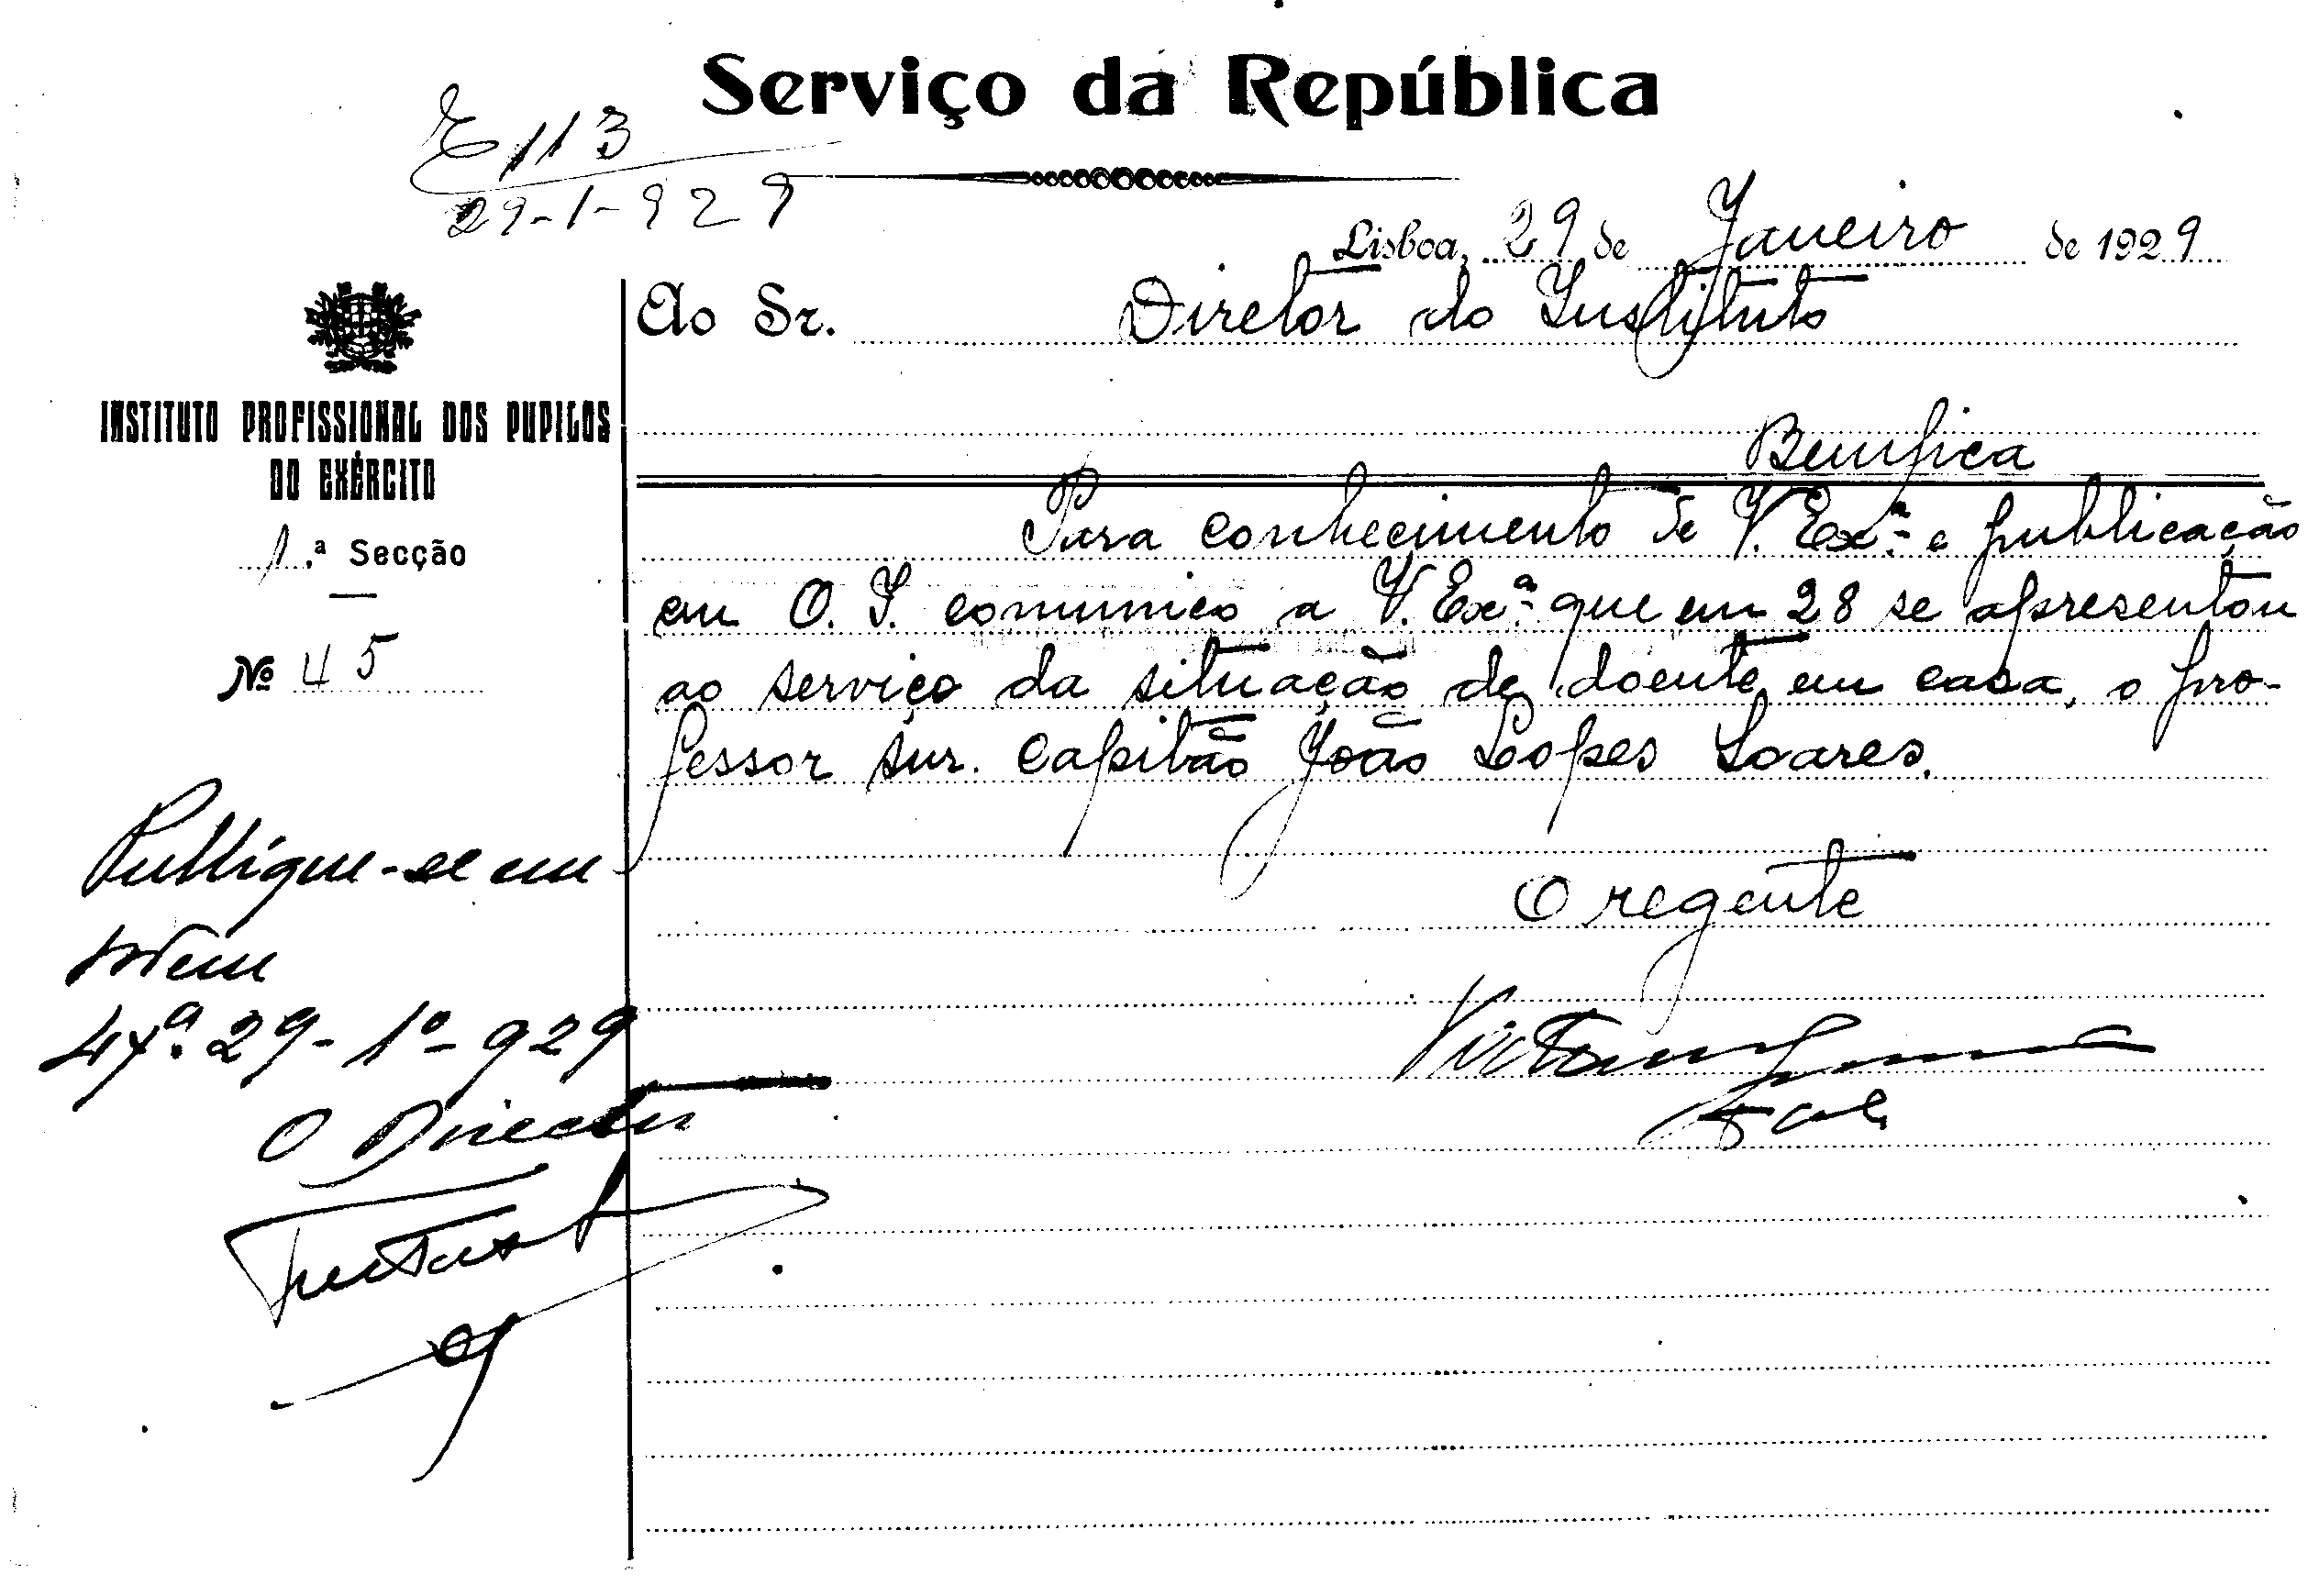 Serviço da República
E 113
29-1-929
Lisboa, 29 de Janeiro de 1929
Ao Sr. Diretor do Instituto
Bemfica
INSTITUTO PROFISSIONAL DOS PUPILOS
DO EXÉRCITO
1.ª Secção
Nº 45
Para conhecimento de V. Exª e publicação
em O. I. comunico a V. Exª que em 28 se apresentou
ao serviço da situação de doente em casa, o pro-
fessor sur. Capitão João Lopes Soares.
O regente
Publique-se em
ordem
29-1º-929
O Director